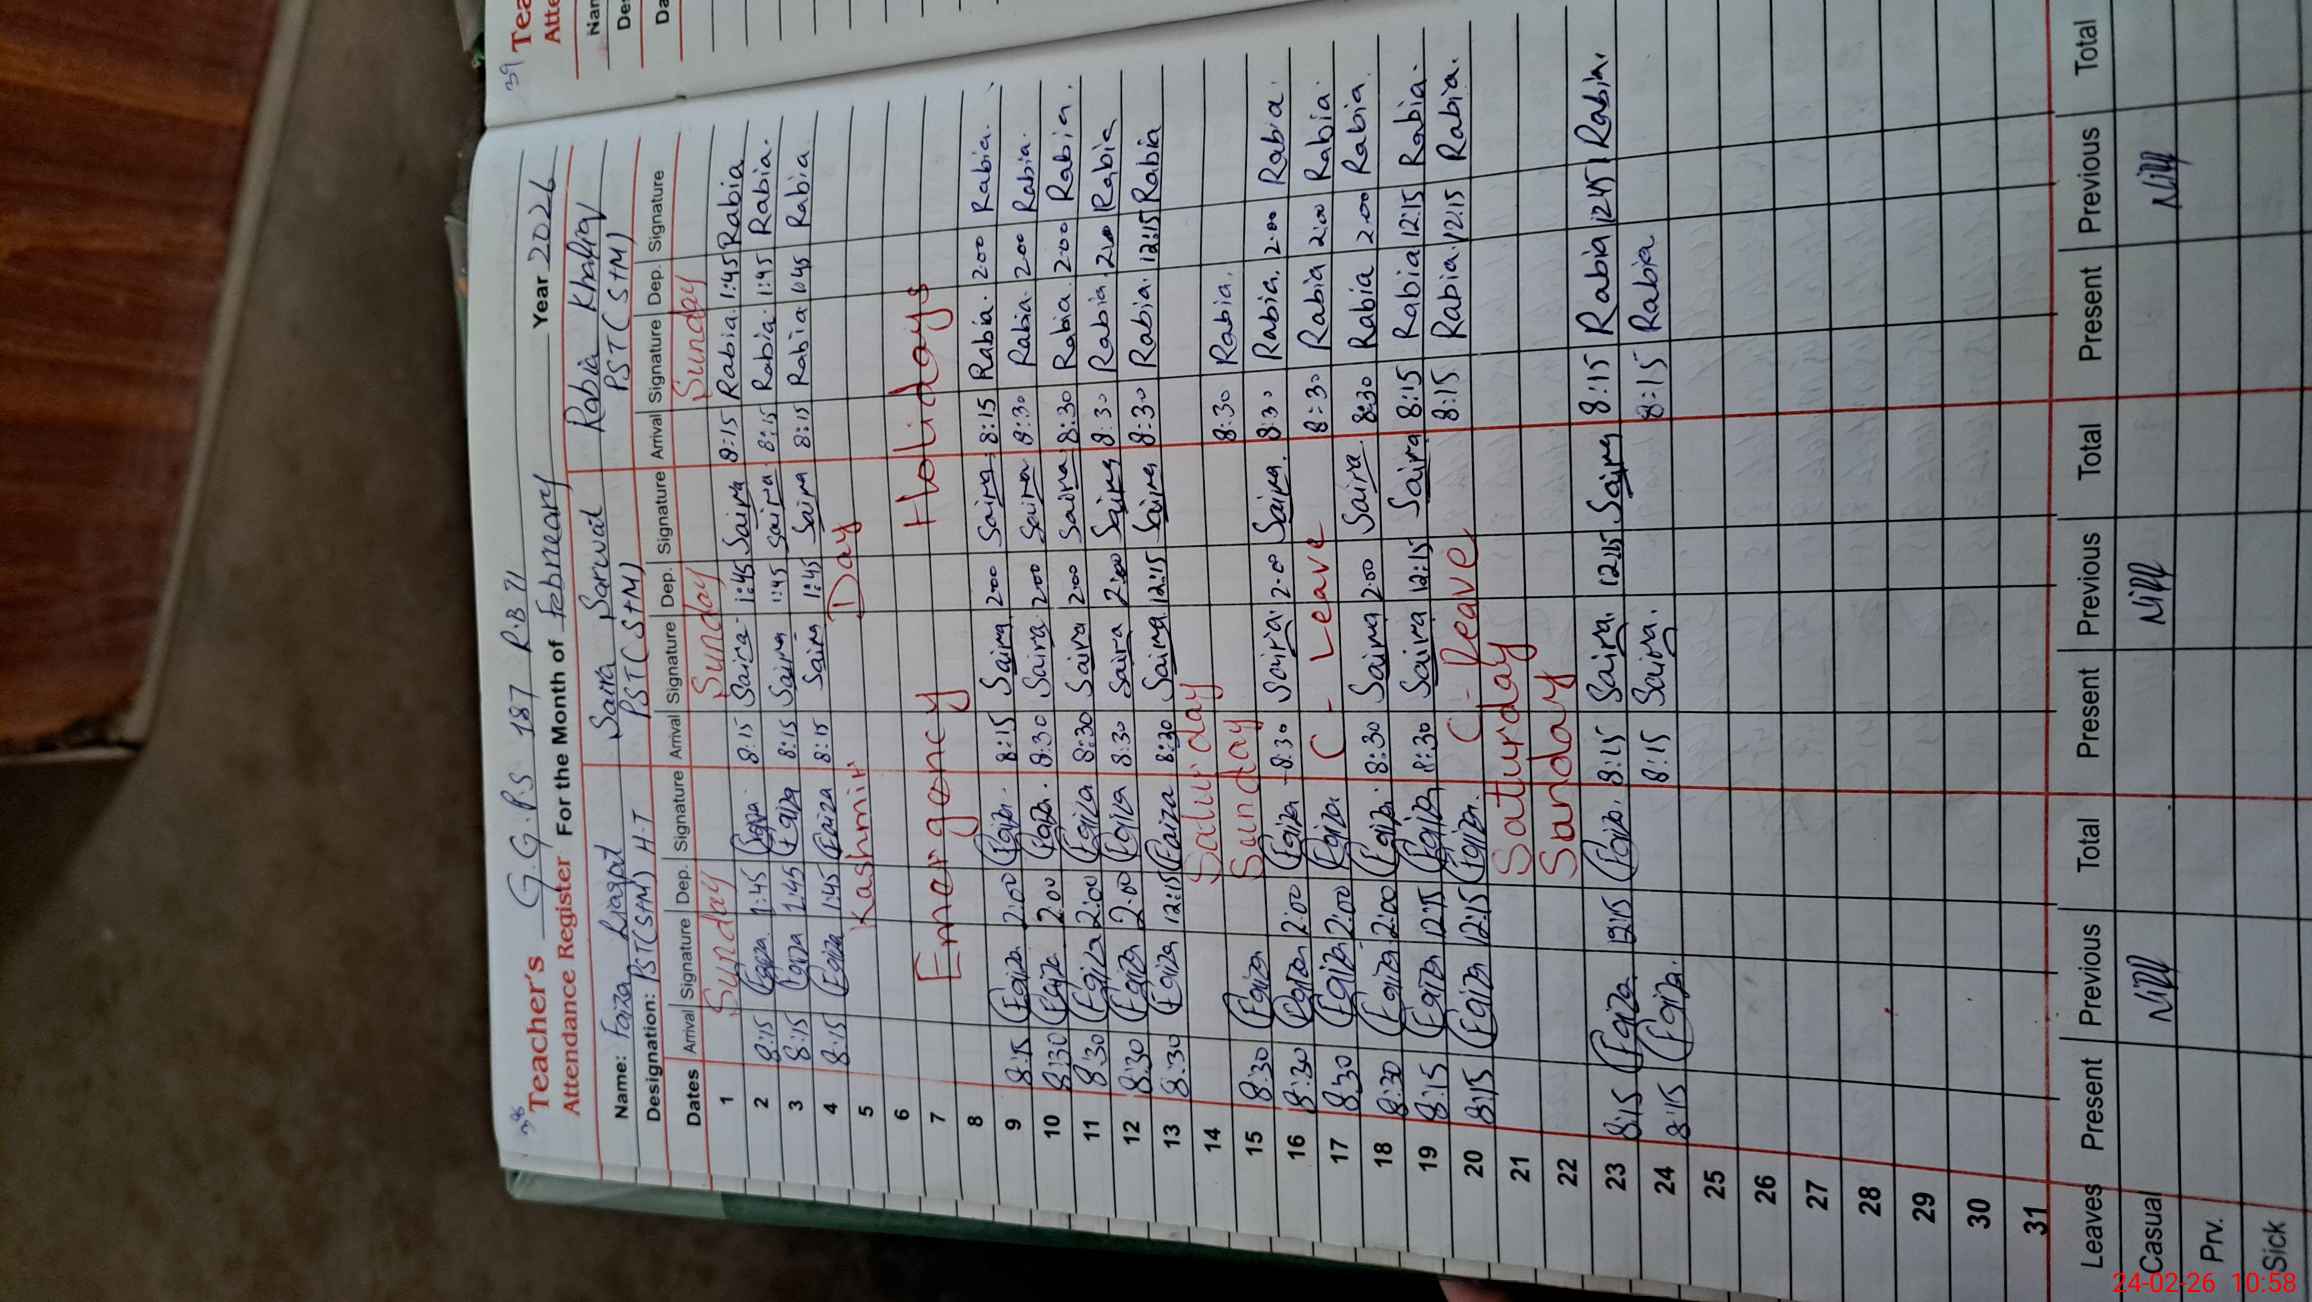 38
Teacher's G.G.P.S 187 R.B 71
Attendance Register For the Month of Febrreary Year 2026
Name: Faiza Liaqat Saira Sarwat Rabia Khaliq
Designation: PST(S+M) H.T PST(S+M) PST(S+M)
Dates Arrival Signature Dep. Signature Arrival Signature Dep. Signature Arrival Signature Dep. Signature
1 Sunday Sunday Sunday
2 8:15 Faiza 1:45 Faiza 8:15 Saira 1:45 Saira 8:15 Rabia 1:45 Rabia
3 8:15 Faiza 1:45 Faiza 8:15 Saira 1:45 Saira 8:15 Rabia 1:45 Rabia
4 8:15 Faiza 1:45 Faiza 8:15 Saira 1:45 Saira 8:15 Rabia 1:45 Rabia
5 Kashmir Day
6
7 Emergency Holidays
8
9 8:15 Faiza 2:00 Faiza 8:15 Saira 2:00 Saira 8:15 Rabia 2:00 Rabia
10 8:30 Faiza 2:00 Faiza 8:30 Saira 2:00 Saira 8:30 Rabia 2:00 Rabia
11 8:30 Faiza 2:00 Faiza 8:30 Saira 2:00 Saira 8:30 Rabia 2:00 Rabia
12 8:30 Faiza 2:00 Faiza 8:30 Saira 2:00 Saira 8:30 Rabia 2:00 Rabia
13 8:30 Faiza 12:15 Faiza 8:30 Saira 12:15 Saira 8:30 Rabia 12:15 Rabia
14 Saturday
15 8:30 Faiza Sunday 8:30 Rabia
16 8:30 Faiza 2:00 Faiza 8:30 Saira 2:00 Saira 8:30 Rabia 2:00 Rabia
17 8:30 Faiza 2:00 Faiza C - Leave 8:30 Rabia 2:00 Rabia
18 8:30 Faiza 2:00 Faiza 8:30 Saira 2:00 Saira 8:30 Rabia 2:00 Rabia
19 8:15 Faiza 12:15 Faiza 8:30 Saira 12:15 Saira 8:15 Rabia 12:15 Rabia
20 8:15 Faiza 12:15 Faiza C - Leave 8:15 Rabia 12:15 Rabia
21 Satturday
22 Sanday
23 8:15 Faiza 12:15 Faiza 8:15 Saira 12:15 Saira 8:15 Rabia 12:45 Rabia
24 8:15 Faiza 8:15 Saira 8:15 Rabia
25
26
27
28
29
30
31
Leaves Present Previous Total Present Previous Total Present Previous Total
Casual Nill Nill Nill
Prv.
Sick
39
Tea
Atte
Nam
Des
Da
24-02-26 10:58